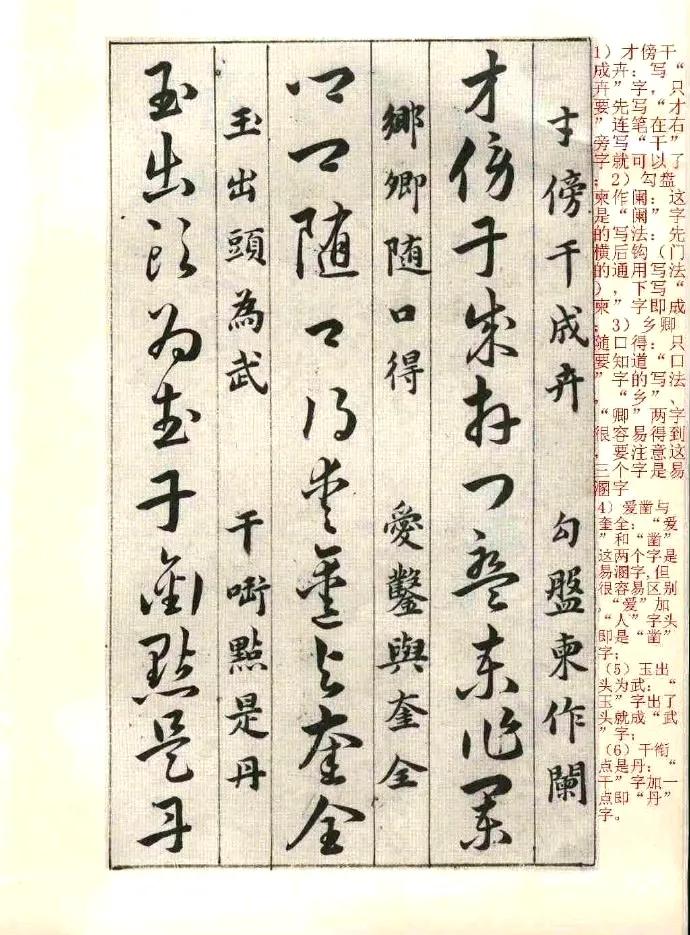 1）才傍干
成卉：写“
卉”字，只
要先写“才
”连笔在右
旁写“干”
字就可以了
；2）勾盘
柬作阑：这
是“阑”字
的写法：先
横后钩（门
的通用写法
），下写“
柬”字即成
；3）乡卿
随口得：只
要知道“口
”字的写法
，“乡”、
“卿”两字
很容易得到
，要注意这
三个字是易
溷字
4）爱凿与
奎全：“爱
”和“凿”
这两个字是
易溷字,但
很容易区别
,“爱”加
“人”字头
即是“凿”
字；
（5）玉出
头为武：“
玉”字出了
头就成“武
”字；
（6）干衔
点是丹：“
干”字加一
点即“丹”
字。
扌傍干成卉 勾盤柬作闌
才傍干成卉勾盤柬作闌
鄉卿随口得 愛鑿與奎全
鄉卿随口得愛鑿與奎全
玉出頭為武 干啣點是丹
玉出頭為武干銜點是丹